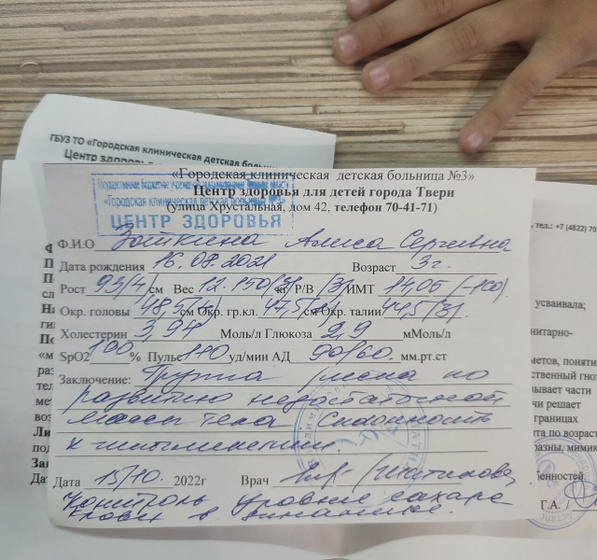 ГБУЗ ТО «Городская клиническая детская больни
Центр здоровь
«Городская клиническая детская больница №3»
Центр здоровья для детей города Твери
(улица Хрустальная, дом 42, телефон 70-41-71)
ЦЕНТР ЗДОРОВЬЯ
тел.: +7 (4822) 70
Ф.И.О Алиса Сергеевна
Дата рождения 16.09.2021 Возраст 3г.
Рост 93/4/см Вес 12.150/3/ кг Р/В /3/ ИМТ 14.05 (-100)
Окр. головы 48,5/4/ см Окр. гр.кл. 47,5/ см Окр. талии 44,5/3/.
Холестерин 3,94 Моль/л Глюкоза 2,9 мМоль/л
SpO2 100 % Пульс 110 уд/мин АД 90/60. мм.рт.ст
Заключение: Группа риска по
развитию недостаточной
массы тела Склонность
к
Дата 15/10. 2022г Врач
Контроль уровня сахара
крови в динамике.
усваивала;
нитарно-
метов, поняти
ственный гноз
зывает части
чи решает
границах
та по возраст
разны, мимик
енностей.
Г.А. /